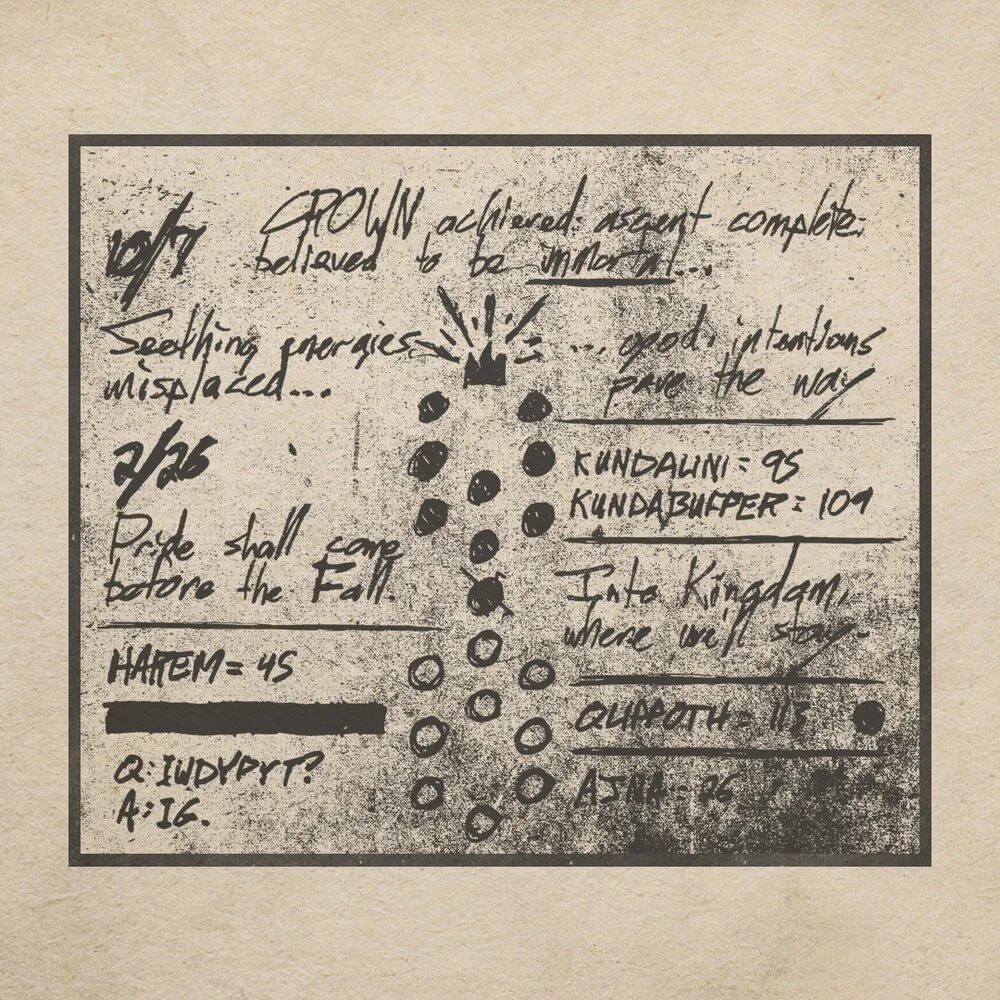 10/7
CROWN achieved: ascent complete.
believed to be immortal...
Seething energies
misplaced...
... good intentions
pave the way
2/26
KUNDALINI = 95
KUNDABUFFER = 109
Pride shall come
before the Fall.
Into Kingdom,
where we'll stay.
HAREM = 45
QLIPPOTH = 113
Q: IWDYPYT?
A: IG.
AJNA = 26